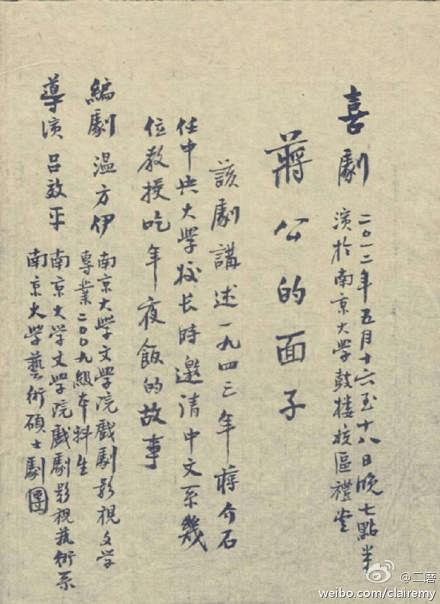 喜劇
二〇一二年五月十六至十八日晚七點半
演於南京大學鼓楼校區禮堂
蔣公的面子
該劇講述一九四三年蔣介石
任中央大學校长時邀请中文系幾
位教授吃年夜飯的故事
編劇 温方伊
南京大学文学院戲劇影視文学
專業二〇〇九級本科生
導演 吕效平
南京大学文学院戲劇影視藝術系
南京大学藝術碩士劇團
weibo.com/clairemy